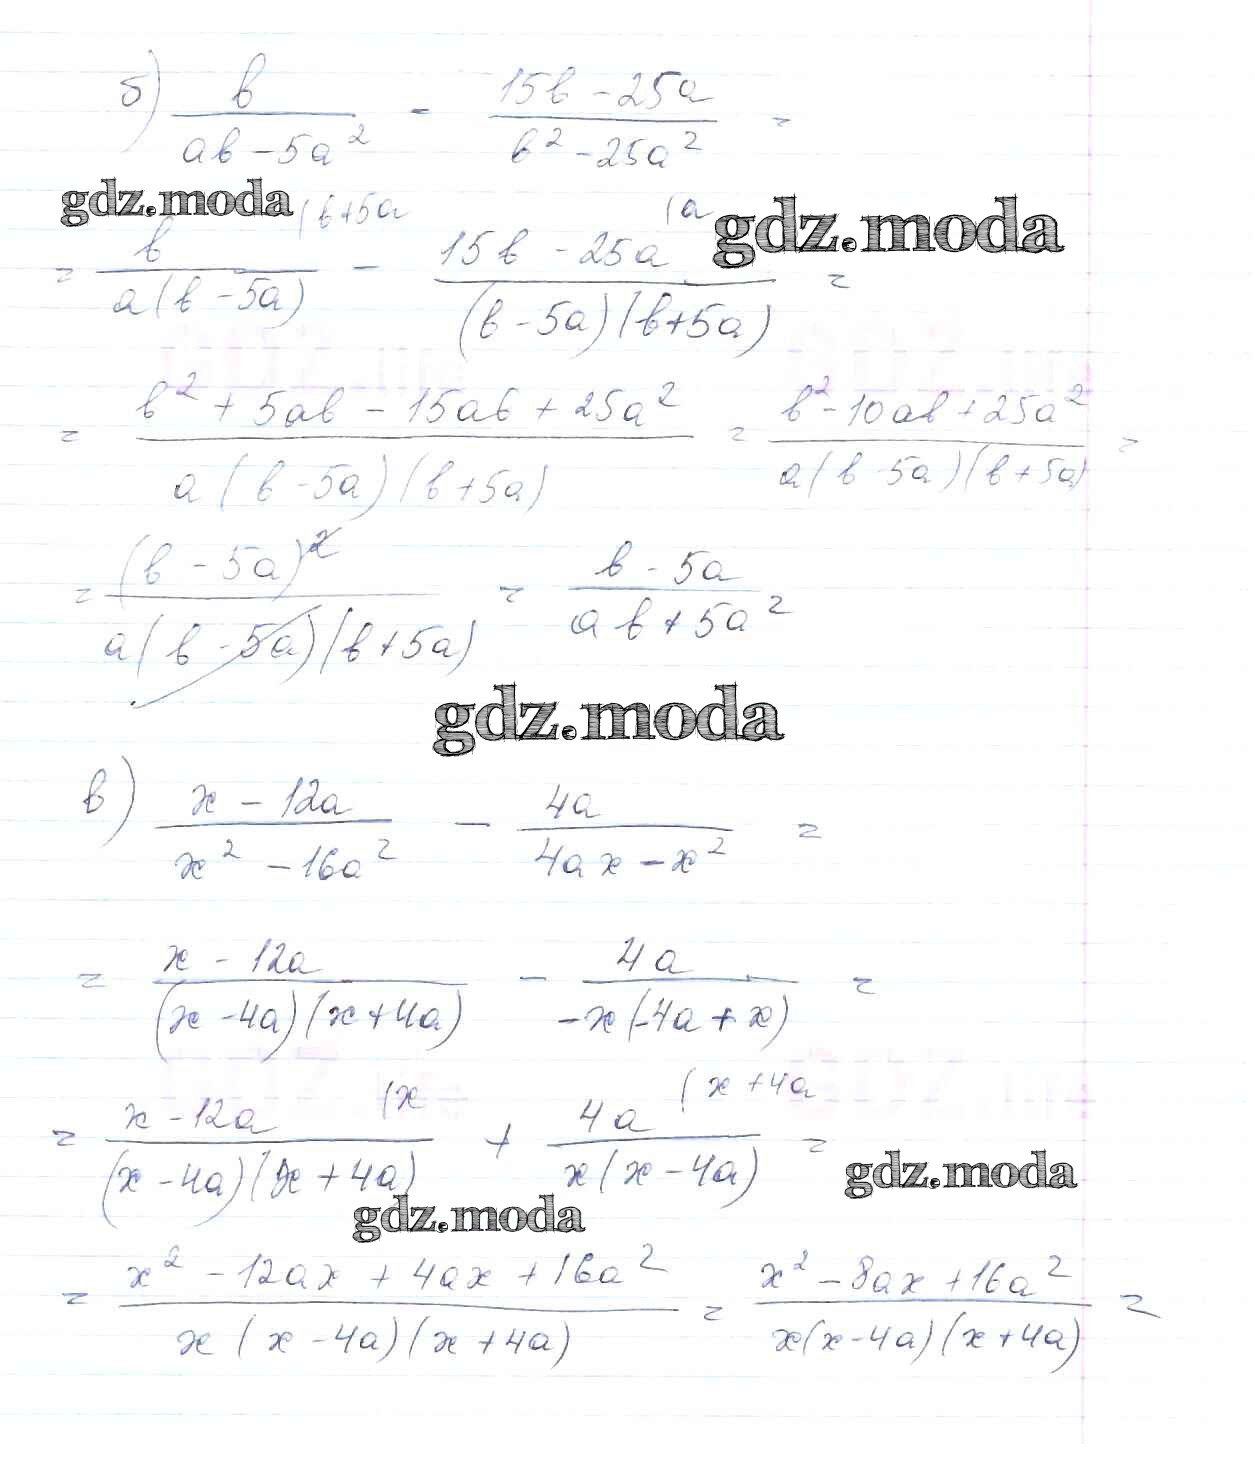 б) b/(ab - 5a²) - (15b - 25a)/(b² - 25a²) =
gdz.moda (b+5a (a gdz.moda
= b/(a(b - 5a)) - (15b - 25a)/((b - 5a)(b+5a)) =
= (b² + 5ab - 15ab + 25a²)/(a(b - 5a)(b+5a)) = (b² - 10ab + 25a²)/(a(b - 5a)(b+5a)) =
= (b - 5a)²/(a(b - 5a)(b+5a)) = (b - 5a)/(ab + 5a²)
gdz.moda
в) (x - 12a)/(x² - 16a²) - 4a/(4ax - x²) =
= (x - 12a)/((x - 4a)(x + 4a)) - 4a/(-x(-4a + x)) =
(x (x + 4a
= (x - 12a)/((x - 4a)(x + 4a)) + 4a/(x(x - 4a)) =
gdz.moda
gdz.moda
= (x² - 12ax + 4ax + 16a²)/(x(x - 4a)(x + 4a)) = (x² - 8ax + 16a²)/(x(x - 4a)(x + 4a)) =